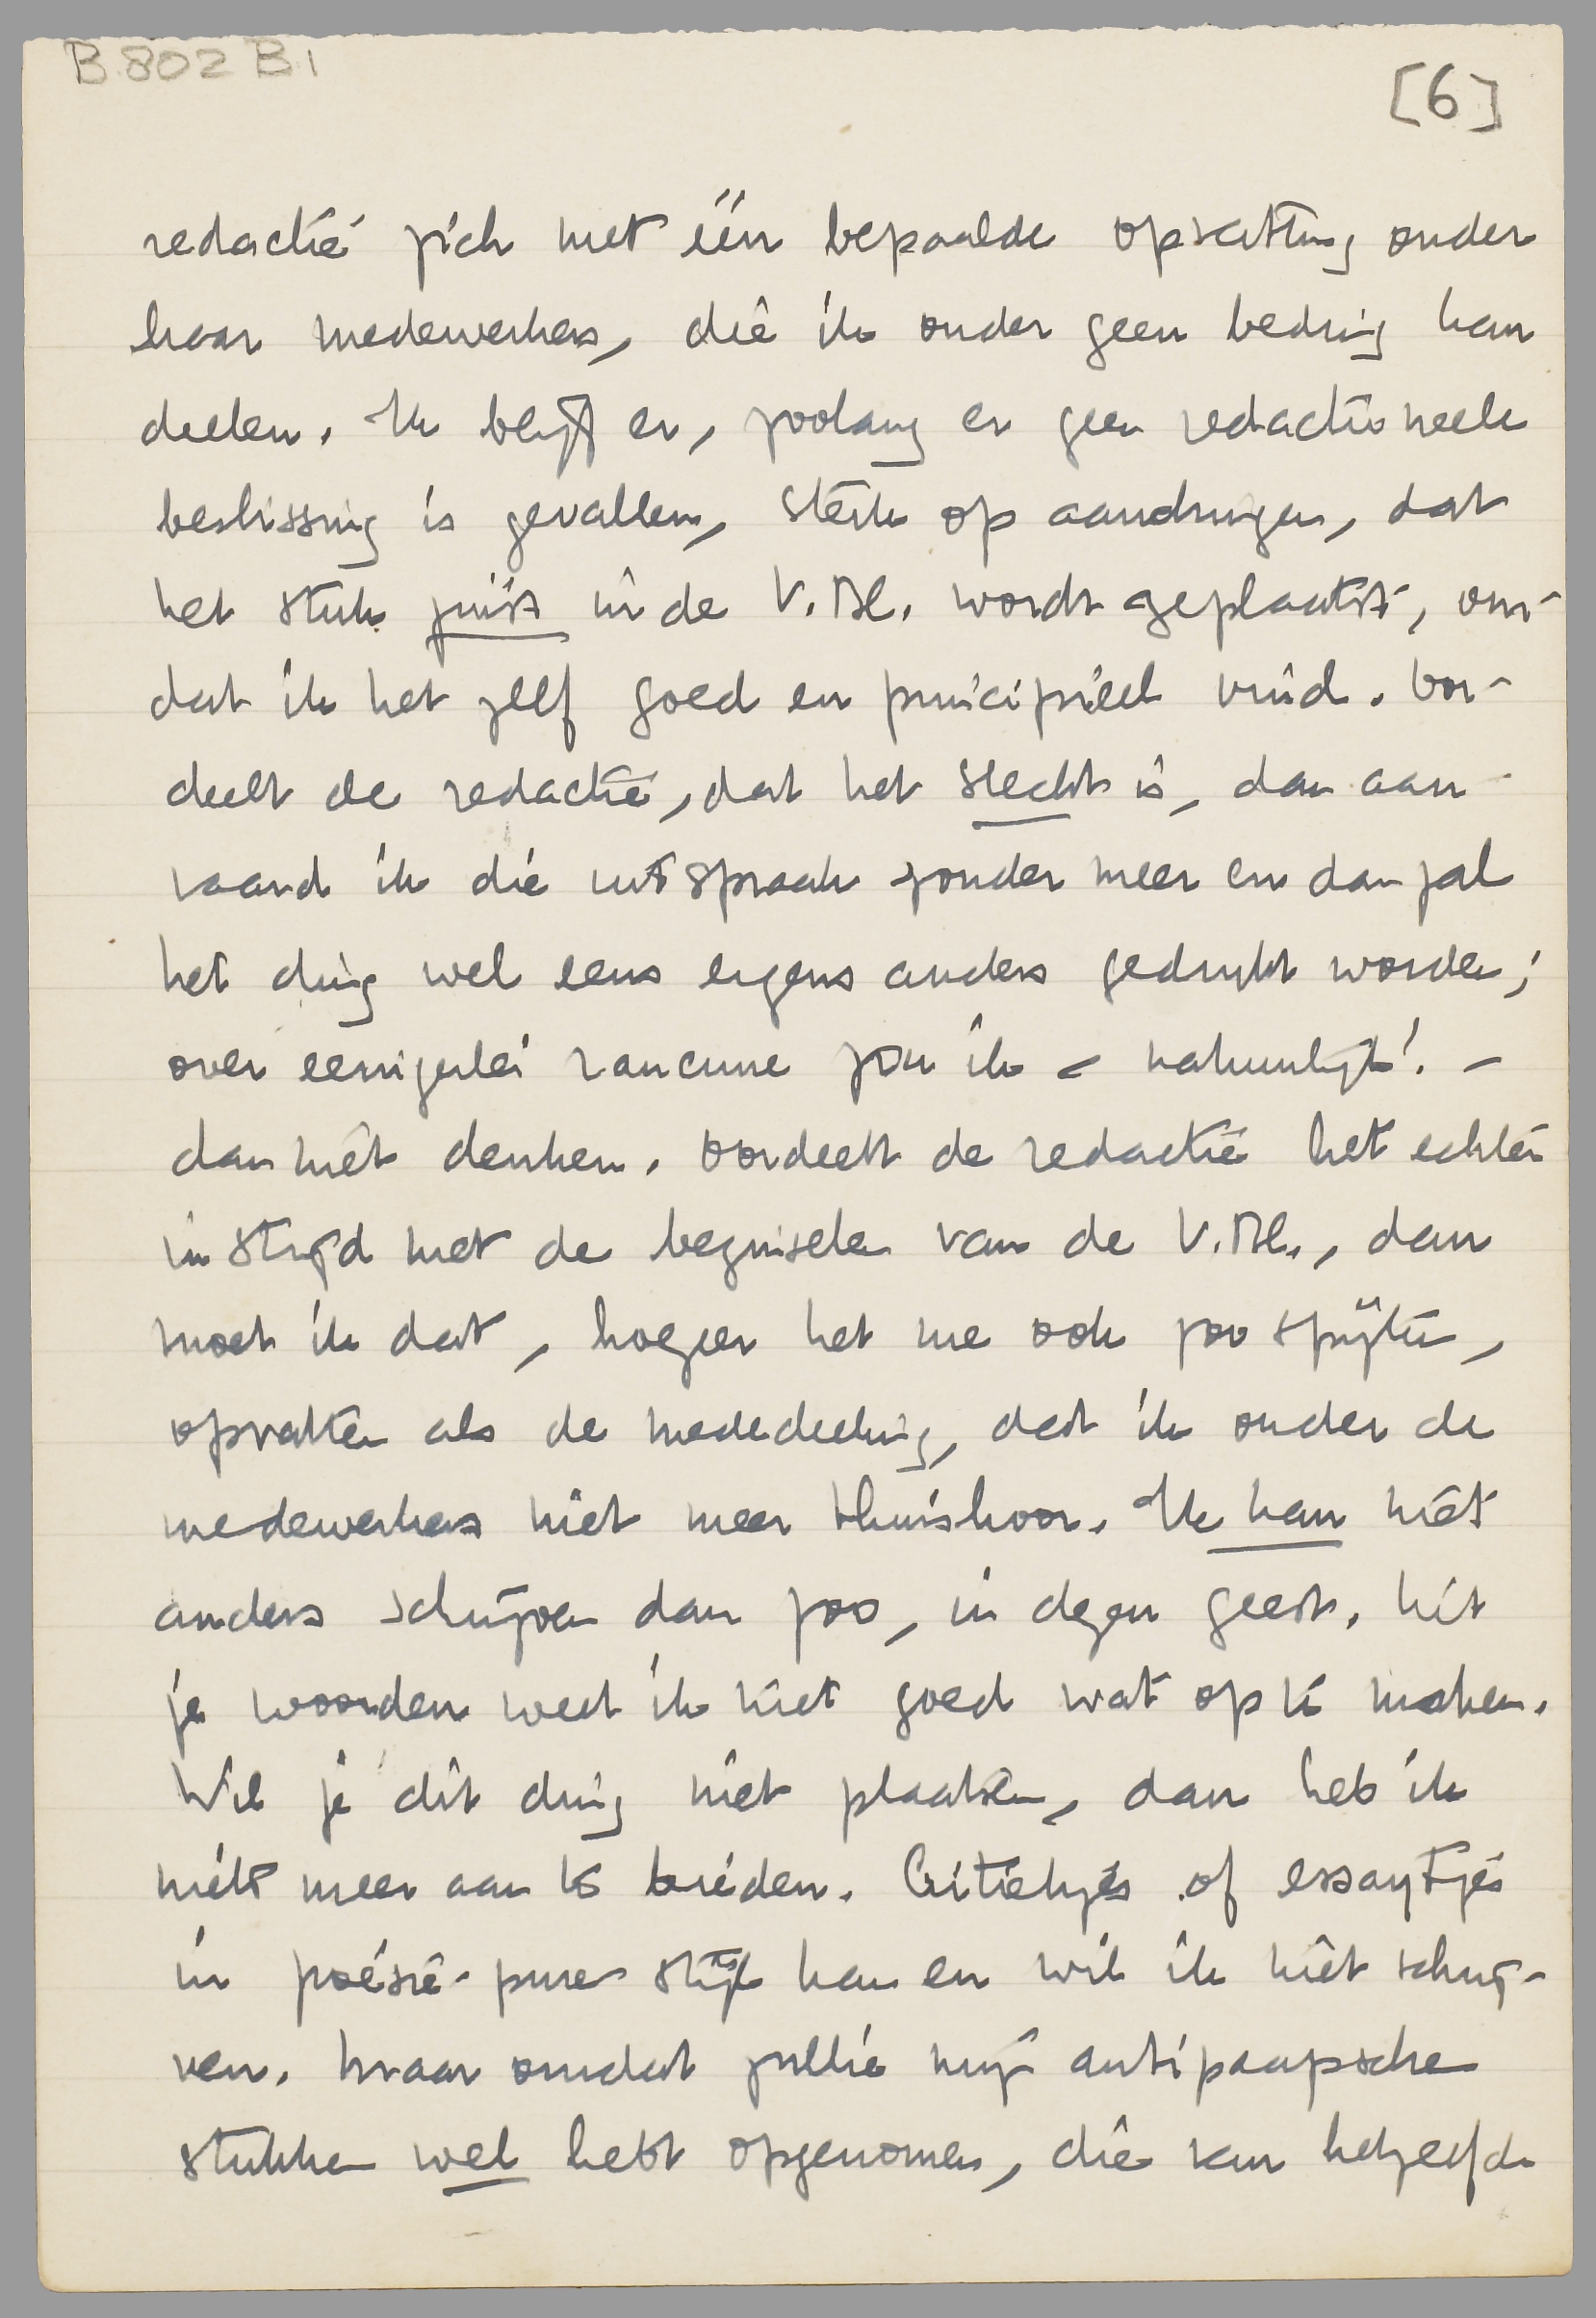 B 802 B1
[6]
redactie zich met één bepaalde opvatting onder
haar medewerkers, die ik onder geen beding kan
deelen. Ik blijf er, zoolang er geen redactioneele
beslissing is gevallen, sterk op aandringen, dat
het stuk juist in de V.Bl. wordt geplaatst, om-
dat ik het zelf goed en principieel vind. Oor-
deelt de redactie, dat het slecht is, dan aan-
vaard ik die uitspraak zonder meer en dan zal
het ding wel eens ergens anders gedrukt worden;
over eenigerlei rancune zou ik - natuurlijk! -
dan niet denken. Oordeelt de redactie het echter
in strijd met de beginselen van de V.Bl., dan
moet ik dat, hoezeer het me ook zou spijten,
opvatten als de mededeeling, dat ik onder de
medewerkers niet meer thuishoor. Ik kan niet
anders schrijven dan zoo, in dezen geest. Uit
je woorden weet ik niet goed wat op te maken.
Wil je dit ding niet plaatsen, dan heb ik
niets meer aan te bieden. Critiekjes of essaytjes
in poésie-pure stijl kan en wil ik niet schrij-
ven. Maar omdat jullie mijn antipaapsche
stukken wel hebt opgenomen, die van hetzelfde